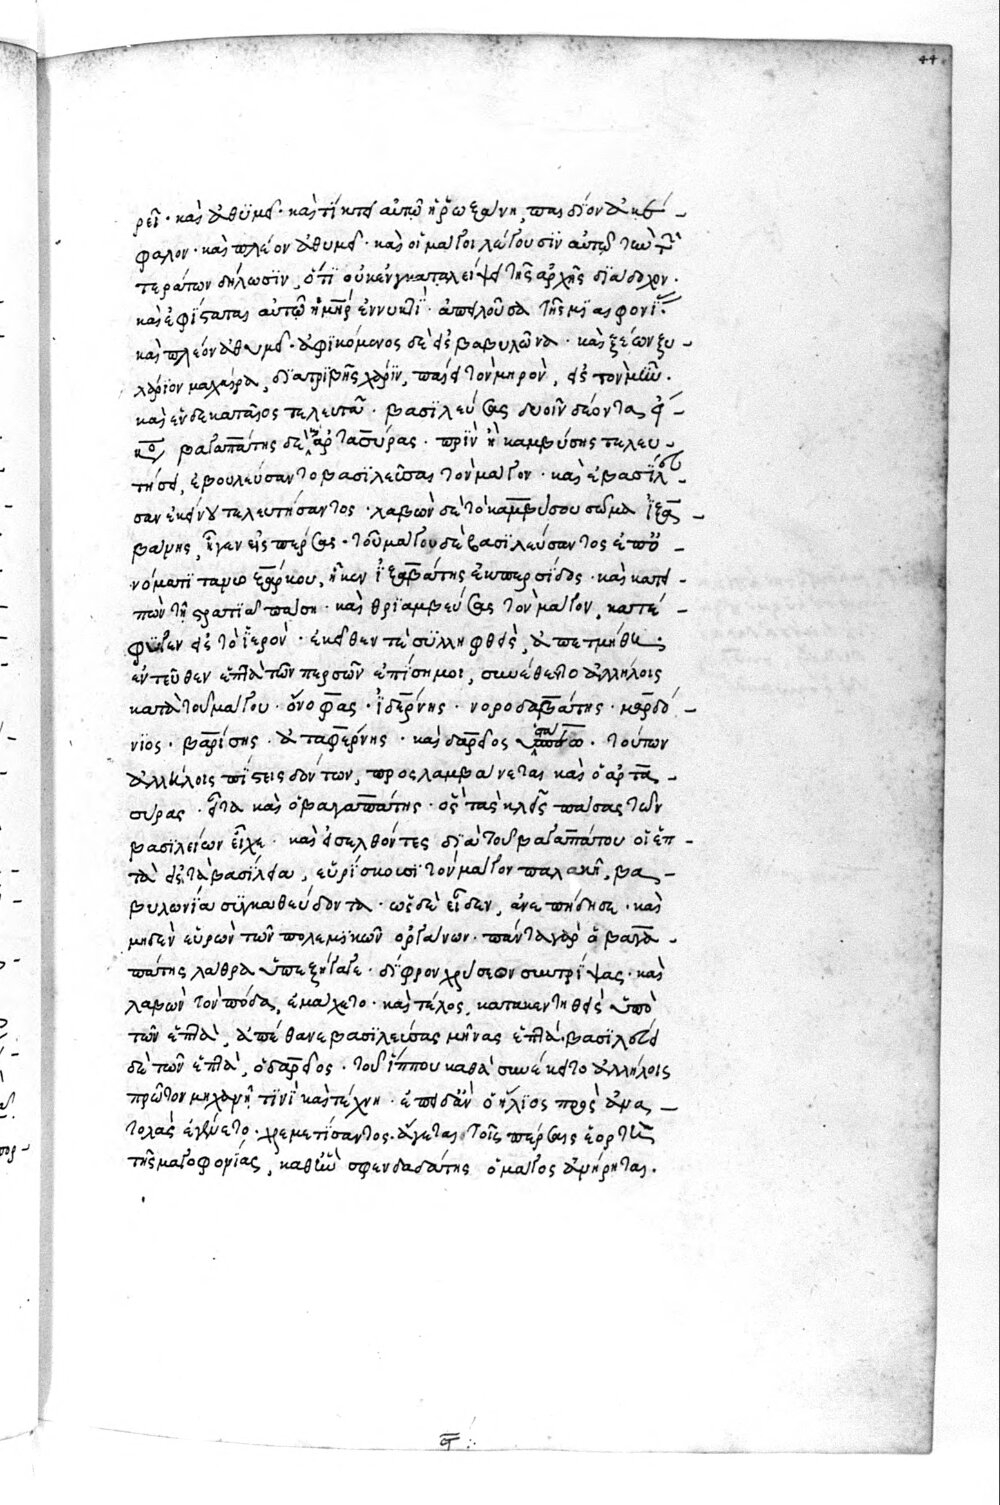 44
ρεῖ· καὶ ἀθυμεῖ· καὶ τίκτει αὐτῷ ἡ Ῥωξάνη, παιδίον ἀκέ-
φαλον· καὶ πλέον ἀθυμεῖ· καὶ οἱ μάγοι λέγουσιν αὐτῷ τὴν τῶν
τεράτων δήλωσιν, ὅτι οὐκ ἐγκαταλείψει τῆς ἀρχῆς διάδοχον.
καὶ ἐφίσταται αὐτῷ ἡ μήτηρ ἐν νυκτί· ἀπειλοῦσα τῆς μιαιφονίας·
καὶ πλέον ἀθυμεῖ· ἀφικόμενος δὲ εἰς βαβυλῶνα· καὶ ξέων ξυ-
λάριον μαχαίρᾳ, διατριβῆς χάριν, παίει τὸν μηρὸν, εἰς τὸν μῦν.
καὶ ἑνδεκαταῖος τελευτᾷ· βασιλεύσας δυοῖν δέοντα εἴ-
κο βαγαπάτης δὲ καὶ ἀρτασύρας· πρὶν ἢ καμβύσης τελευ-
τῆσαι, ἐβουλεύσαντο βασιλεῦσαι τὸν μάγον· καὶ ἐβασίλευ-
σαν ἐκείνου τελευτήσαντος· λαβὼν δὲ τὸ καμβύσου σῶμα ἰξα-
βάτης, ἦγεν εἰς πέρσας· τοῦ μάγου δὲ βασιλεύσαντος ἐπ' ὀ-
νόματι τανυοξάρκου, ἧκεν ἰξαβάτης ἐκ περσίδος· καὶ κατει-
πὼν τῇ στρατιᾷ πάσῃ· καὶ θριαμβεύσας τὸν μάγον, κατέ-
φυγεν εἰς τὸ ἱερόν· ἐκεῖθέν τε συλληφθεὶς, ἀπετμήθη·
ἐντεῦθεν ἑπτὰ τῶν περσῶν ἐπίσημοι, συνέθεντο ἀλλήλοις
κατὰ τοῦ μάγου· ὀνόφας· ἰδέρνης· νοροδαβάτης· μαρδό-
νιος· βαρίσης· ἀταφέρνης· καὶ δαρεῖος ὑστάσπεω· τούτων
ἀλλήλοις πίστεις δόντων, προσλαμβάνεται καὶ ὁ ἀρτα-
σύρας· εἶτα καὶ ὁ βαγαπάτης· ὃς τὰς κλεῖς πάσας τῶν
βασιλείων εἶχε· καὶ εἰσελθόντες διὰ τοῦ βαγαπάτου οἱ ἑπ-
τὰ εἰς τὰ βασίλεια, εὑρίσκουσι τὸν μάγον παλλακῇ, βα-
βυλωνίᾳ συγκαθεύδοντα· ὡς δὲ εἶδεν, ἀνεπήδησε· καὶ
μηδὲν εὑρὼν τῶν πολεμικῶν ὀργάνων· πάντα γὰρ ὁ βαγα-
πάτης λάθρα ὑπεξήγαγε· δίφρον χρύσεον συντρίψας· καὶ
λαβὼν τὸν πόδα, ἐμάχετο· καὶ τέλος, κατακεντηθεὶς ὑπὸ
τῶν ἑπτὰ, ἀπέθανε βασιλεύσας μῆνας ἑπτά· βασιλεύει
δὲ τῶν ἑπτὰ, ὁ δαρεῖος· τοῦ ἵππου καθὰ συνέκειτο ἀλλήλοις
πρῶτον μηχανῇ τινι καὶ τέχνῃ· ἐπειδὰν ὁ ἥλιος πρὸς ἀνα-
τολὰς ἐγένετο· χρεμετίσαντος· ἄγεται τοῖς πέρσαις ἑορτὴ
τῆς μαγοφονίας, καθ' ἣν σφενδαδάτης ὁ μάγος ἀνῄρηται.